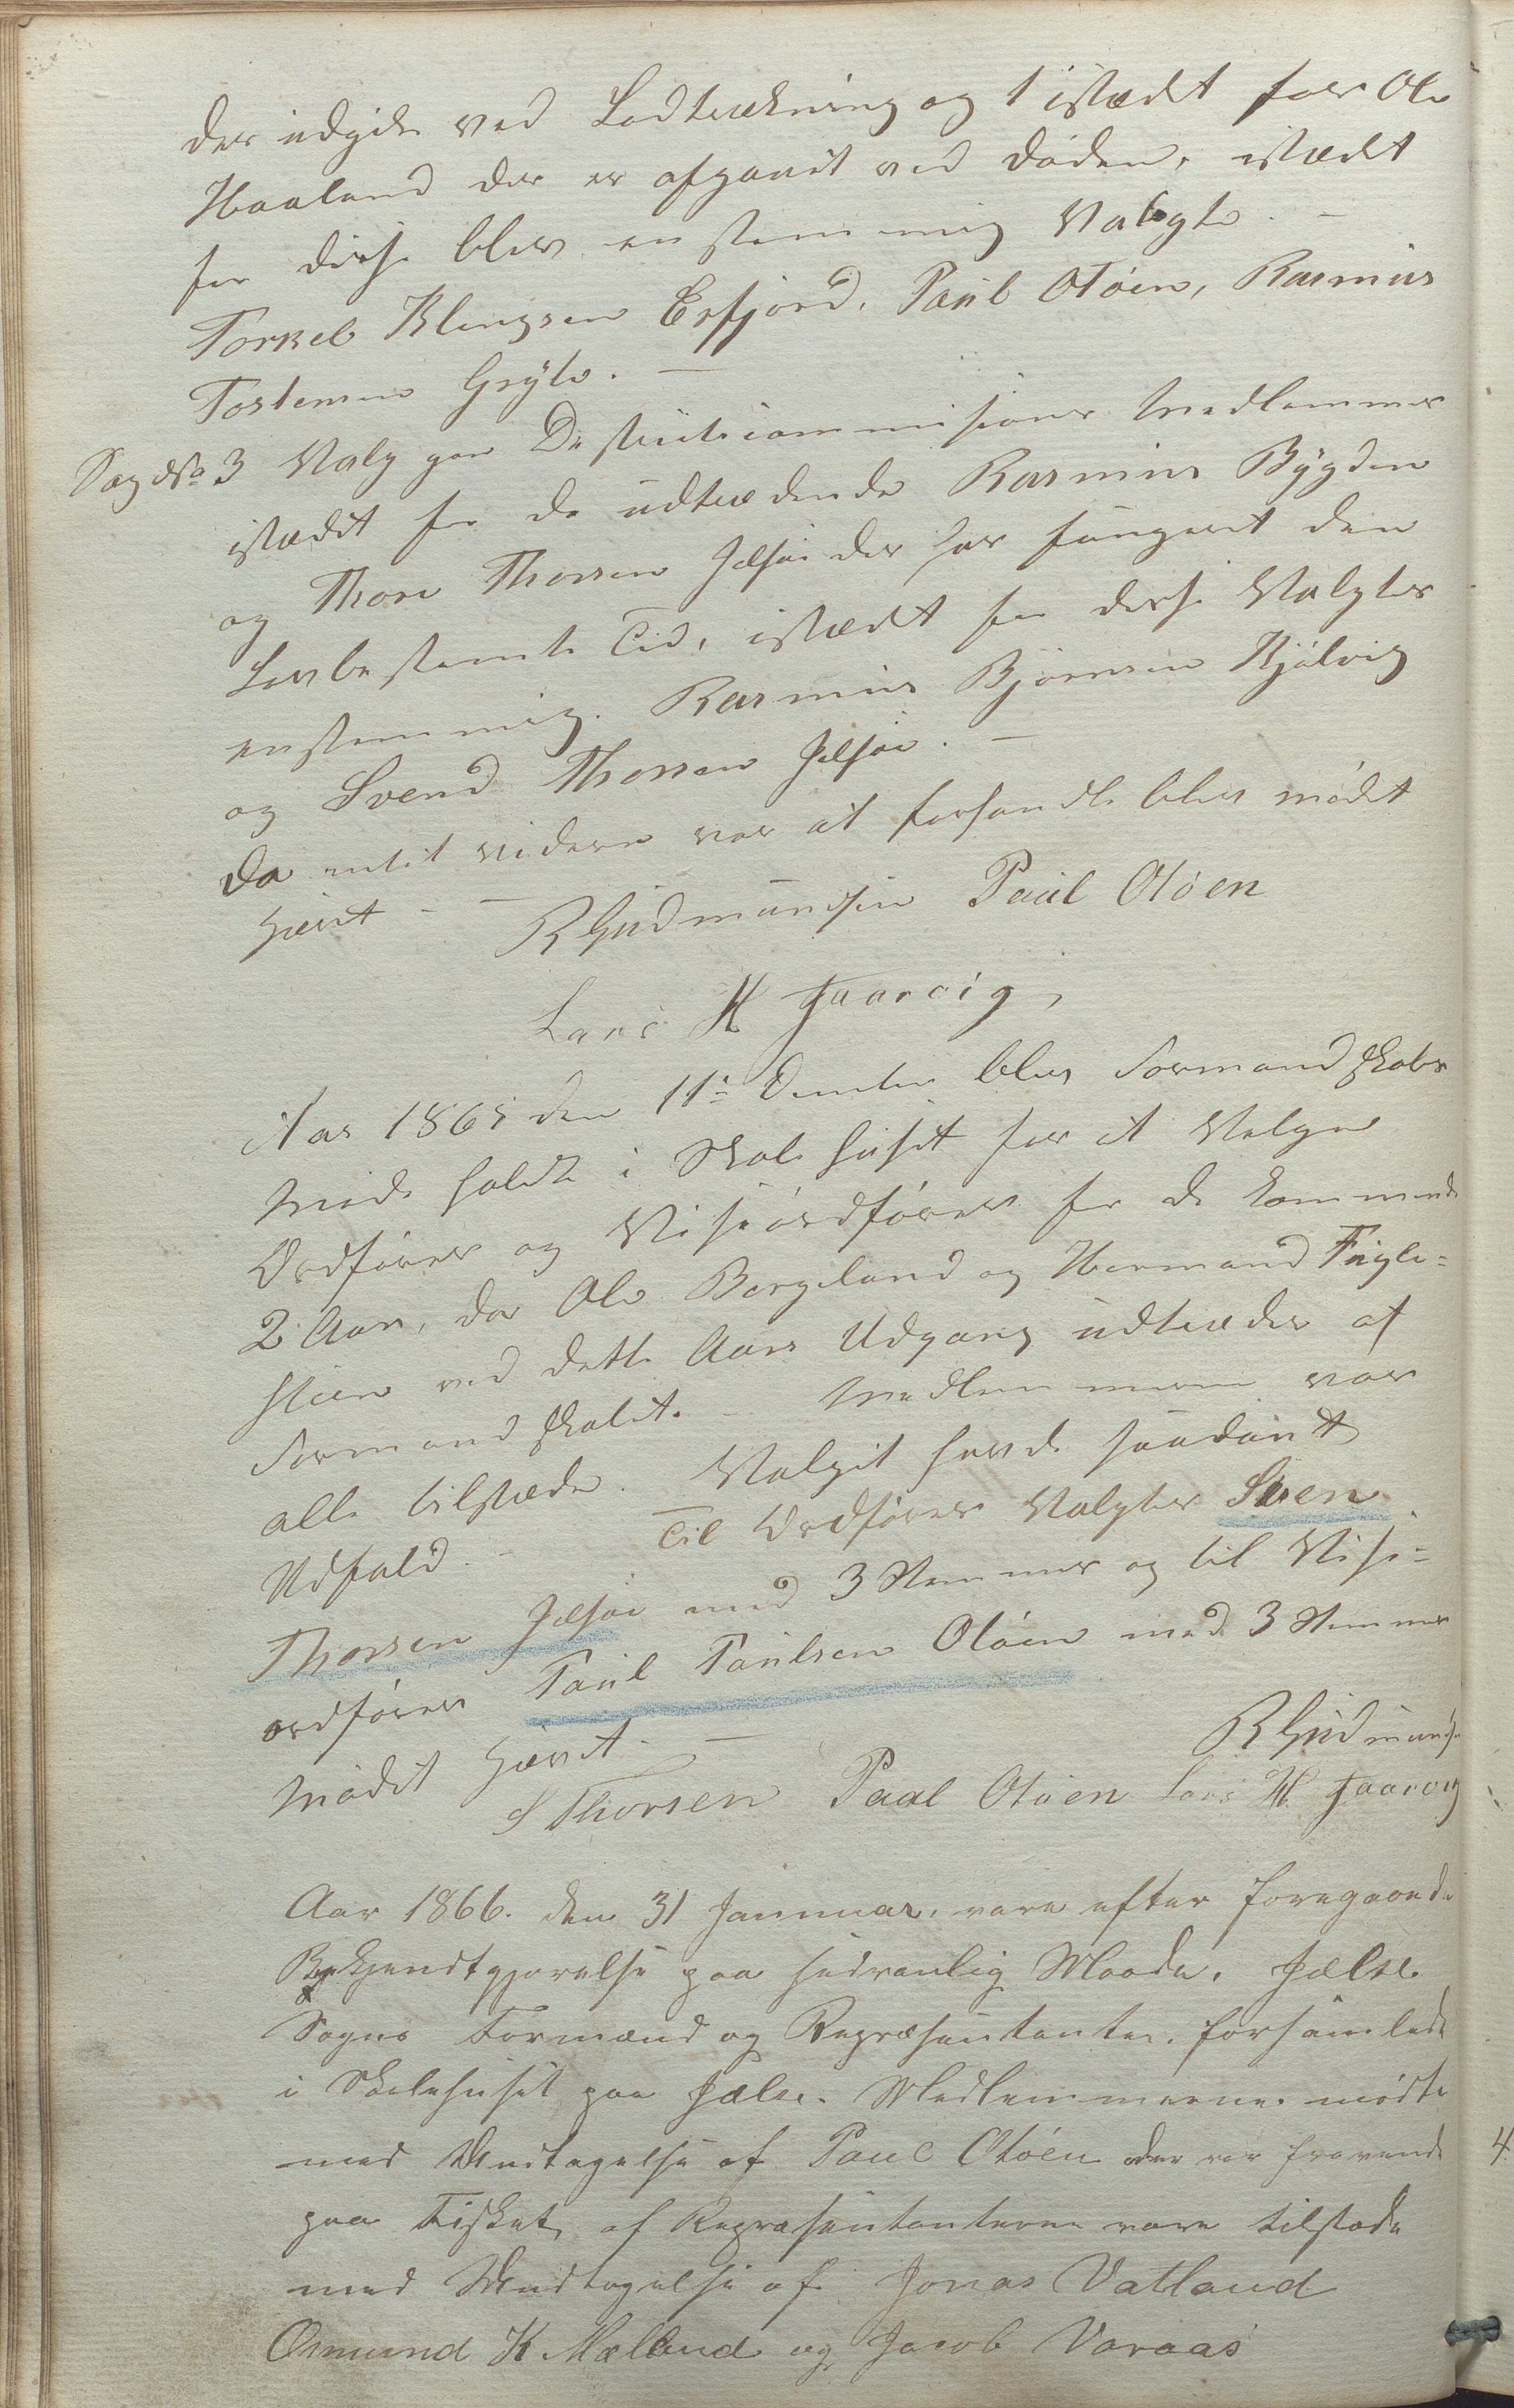 der udgik ved Lodtrækning og 1 istædet for Ole
Haaland der er afgaaet ved døden, istædet
for disse blev enstemmig Valgte. –
Torkel Klungsen Erfjord, Paul Otøen, Rasmus
Tostensen Gryte. –
Sag No 3 Valg paa Distriktcommisions Medlemmer
istædet for de udtrædende Rasmus Bygden
og Thore Thorsen Jelsøe der har fungeret den
Lovbestemte Tid, istædet for disse Valgtes
enstemmig. Rasmus Bjørnsen Kjølvig
og Svend Thorsen Jelsøe. –
Da intet videre var at forhandle blev mødet
hævet – R Gudmundsen Paul Otøen
Lars H Haarvig,
Aar 1865 den 11te December blev Formandskabs
Møde holdt i Skolehuset for at Velge
Ordfører og Viseordfører for de kommende
2 Aar, da Ole Bergeland og Hermand Fugle=
steen ved dette Aars Udgang udtræder af
Formandskabet. – Medlemmerne var
alle tilstæde. Valget havde saadant
Udfald. – Til Ordfører Valgtes Sven
Thorsen Jelsøe med 3 Stemmer og til Vise=
ordfører Paul Paulsen Otøen med 3 Stemmer
Mødet hævet. – R Gudmundsen
S Thorsen Paal Otøen Lars H. Haarvig
Aar 1866. den 31 Januar, vare efter foregaaende
Bekjendtgjørelse paa sædvanlig Maade, Jælse
Sogns Formænd og Repræsentanter, forsamlede
i Skolehuset paa Jælse. Medlemmerne mødte
med Undtagelse af Paul Otøen der var fraværende
paa Fisket, af Repræsentanterne vare tilstæde
med Undtagelse af Jonas Vatland
Osmund K. Mælland og Jacob Varaas